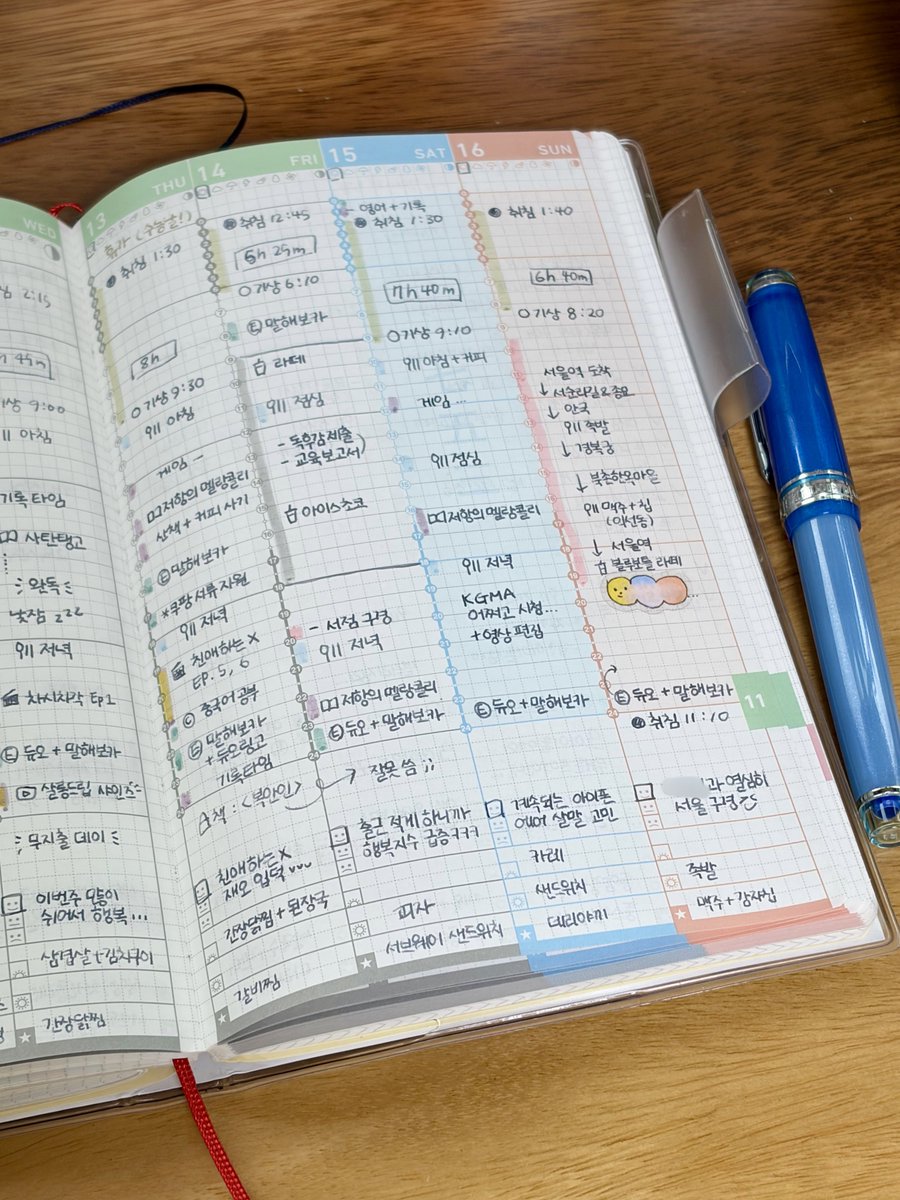 WED
2:15
9:00
아침
기록타임
사탄탱고
완독
낮잠 zzz
저녁
차시차각 EP1
Ⓔ 듀오 + 말해보카
살롱드립 샤인즈
무지출 데이
이번주 모등이
쉬어서 행복...
삼겹살 + 김치구이
간장닭찜
13 THU
휴가 (수능날!)
취침 1:30
8h
기상 9:30
아침
게임 -
저항의 멜랑콜리
산책 + 커피 사기
Ⓔ 말해보카
*쿠팡 서류 지원
저녁
친애하는 X
EP. 5, 6
Ⓒ 중국어 공부
Ⓔ 말해보카
+ 듀오링고
기록타임
책 : <복안인>
친애하는 X
재오 입덕
간장닭찜 + 된장국
갈비찜
14 FRI
취침 12:45
5h 25m
기상 6:10
Ⓔ 말해보카
라떼
점심
- 독후감 제출
- 교육보고서
아이스초코
- 서점 구경
저녁
저항의 멜랑콜리
Ⓔ 듀오 + 말해보카
잘못 씀 ;;
출근 적게 하니까
행복지수 급증ㅋㅋㅋ
피자
서브웨이 샌드위치
15 SAT
영어 + 기록
취침 1:30
7h 40m
기상 9:10
아침 + 커피
게임 ...
점심
저항의 멜랑콜리
저녁
KGMA
어쩌고 시청...
+ 영상 편집
Ⓔ 듀오 + 말해보카
계속되는 아이폰
에어 살말 고민
카레
샌드위치
데리야끼
16 SUN
취침 1:40
6h 40m
기상 8:20
서울역 도착
↓ 서순라길 & 종묘
↓ 안국
족발
↓ 경복궁
↓ 북촌한옥마을
맥주 + 칩
(익선동)
↓ 서울역
블루보틀 라떼
Ⓔ 듀오 + 말해보카
취침 11:10
과 열심히
서울 구경
족발
맥주 + 감자칩
11